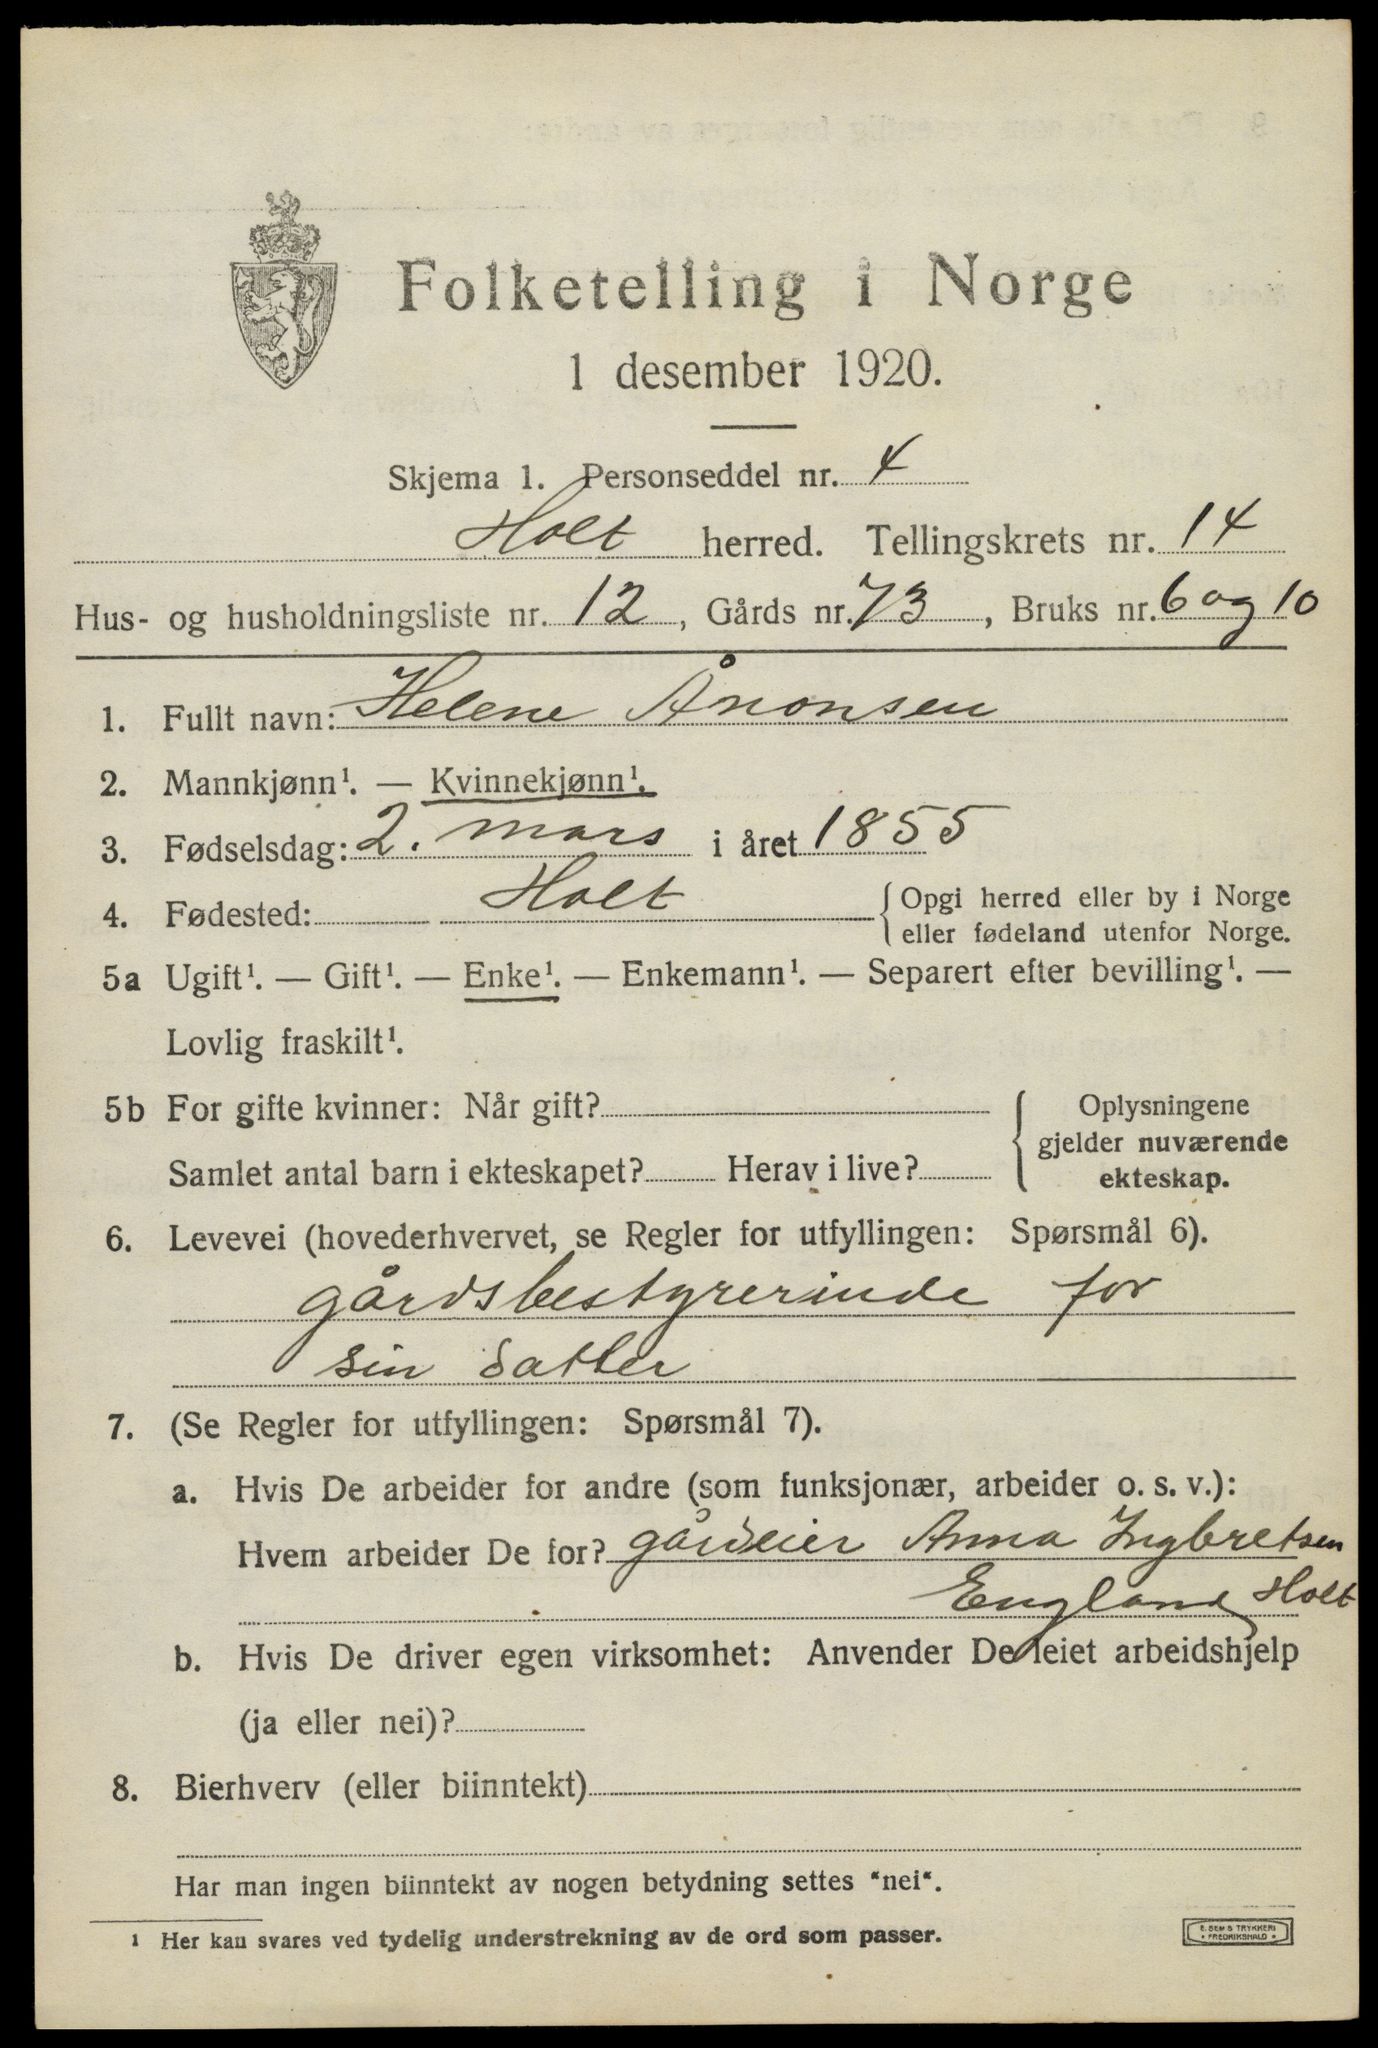 Folketelling i Norge
1 desember 1920.
Skjema 1. Personseddel nr. 4
Holt herred. Tellingskrets nr. 14
Hus- og husholdningsliste nr. 12, Gårds nr. 73, Bruks nr. 6 og 10
1. Fullt navn: Helene Ånonsen
2. Mannkjønn¹. — Kvinnekjønn¹.
3. Fødselsdag: 2. mars i året 1855
4. Fødested: Holt {Opgi herred eller by i Norge
eller fødeland utenfor Norge.
5a Ugift¹. — Gift¹. — Enke¹. — Enkemann¹. — Separert efter bevilling¹. —
Lovlig fraskilt¹.
5b For gifte kvinner: Når gift? { Oplysningene
gjelder nuværende
Samlet antal barn i ekteskapet? Herav i live? ekteskap.
6. Levevei (hovederhvervet, se Regler for utfyllingen: Spørsmål 6).
gårdsbestyrerinde for
sin datter
7. (Se Regler for utfyllingen: Spørsmål 7).
a. Hvis De arbeider for andre (som funksjonær, arbeider o. s. v.):
Hvem arbeider De for? gårdeier Anna Ingbretsen
England Holt
b. Hvis De driver egen virksomhet: Anvender De leiet arbeidshjelp
(ja eller nei)?
8. Bierhverv (eller biinntekt)
Har man ingen biinntekt av nogen betydning settes "nei".
1 Her kan svares ved tydelig understrekning av de ord som passer.
E. SEM'S TRYKKERI
• FREDRIKSHALD •